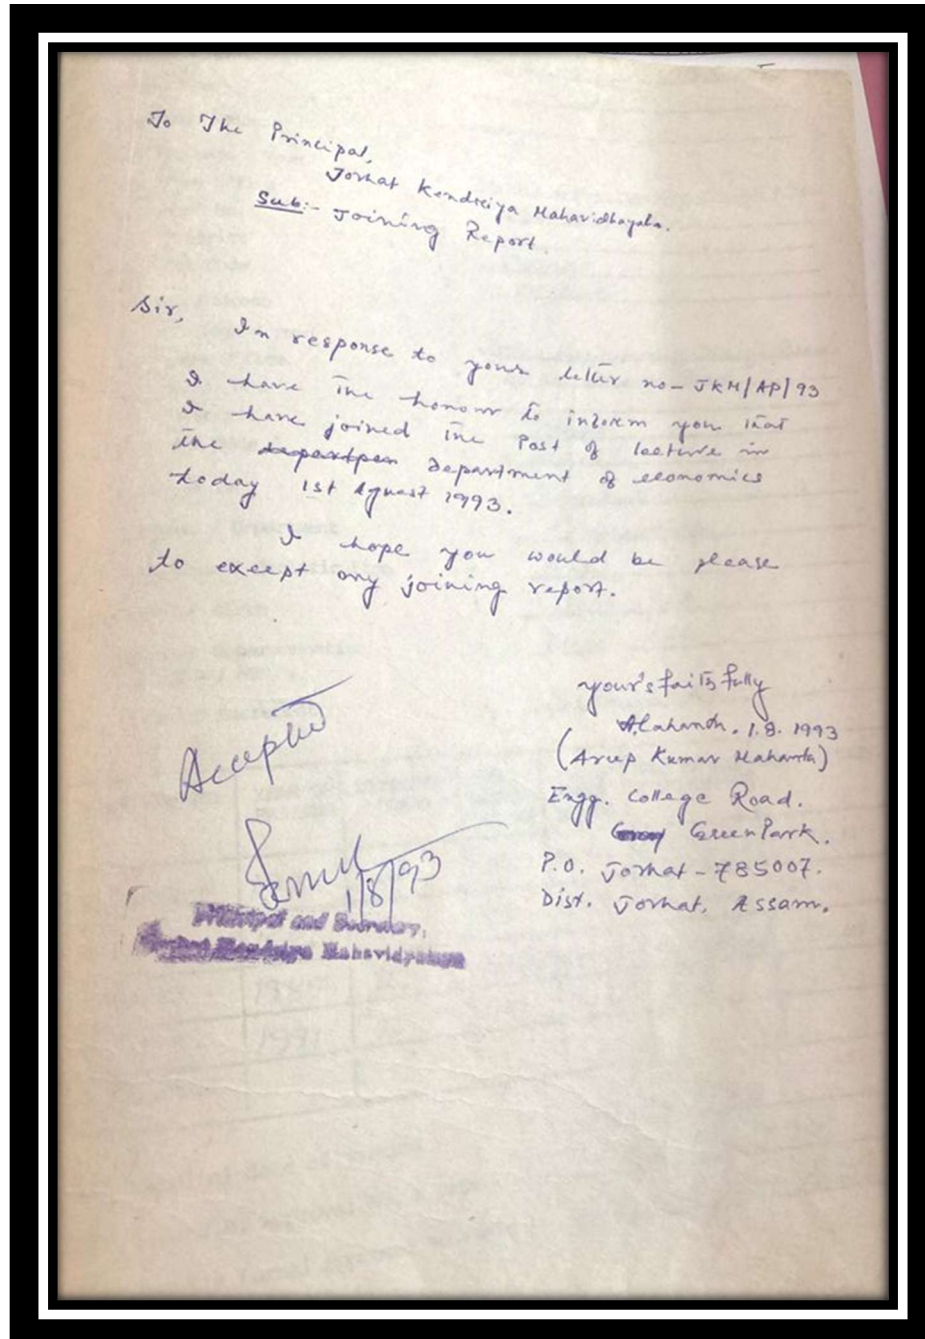 To The Principal,
Jorhat Kendriya Mahavidhayala.
Sub:- Joining Report.
Sir,
In response to your letter no- JKM/AP/93
I have the honour to inform you that
I have joined the Post of lecture in
the department of economics
today 1st Aguast 1993.
I hope you would be please
to except my joining report.
your's faithfully
1.8.1993
(Arup Kumar Mahanta)
Engg. College Road.
Green Park.
P.O. Jorhat - 785007.
Dist. Jorhat, Assam.
Accepted
1/8/93
Principal and Secretary,
Jorhat Kendriya Mahavidyalaya
1991